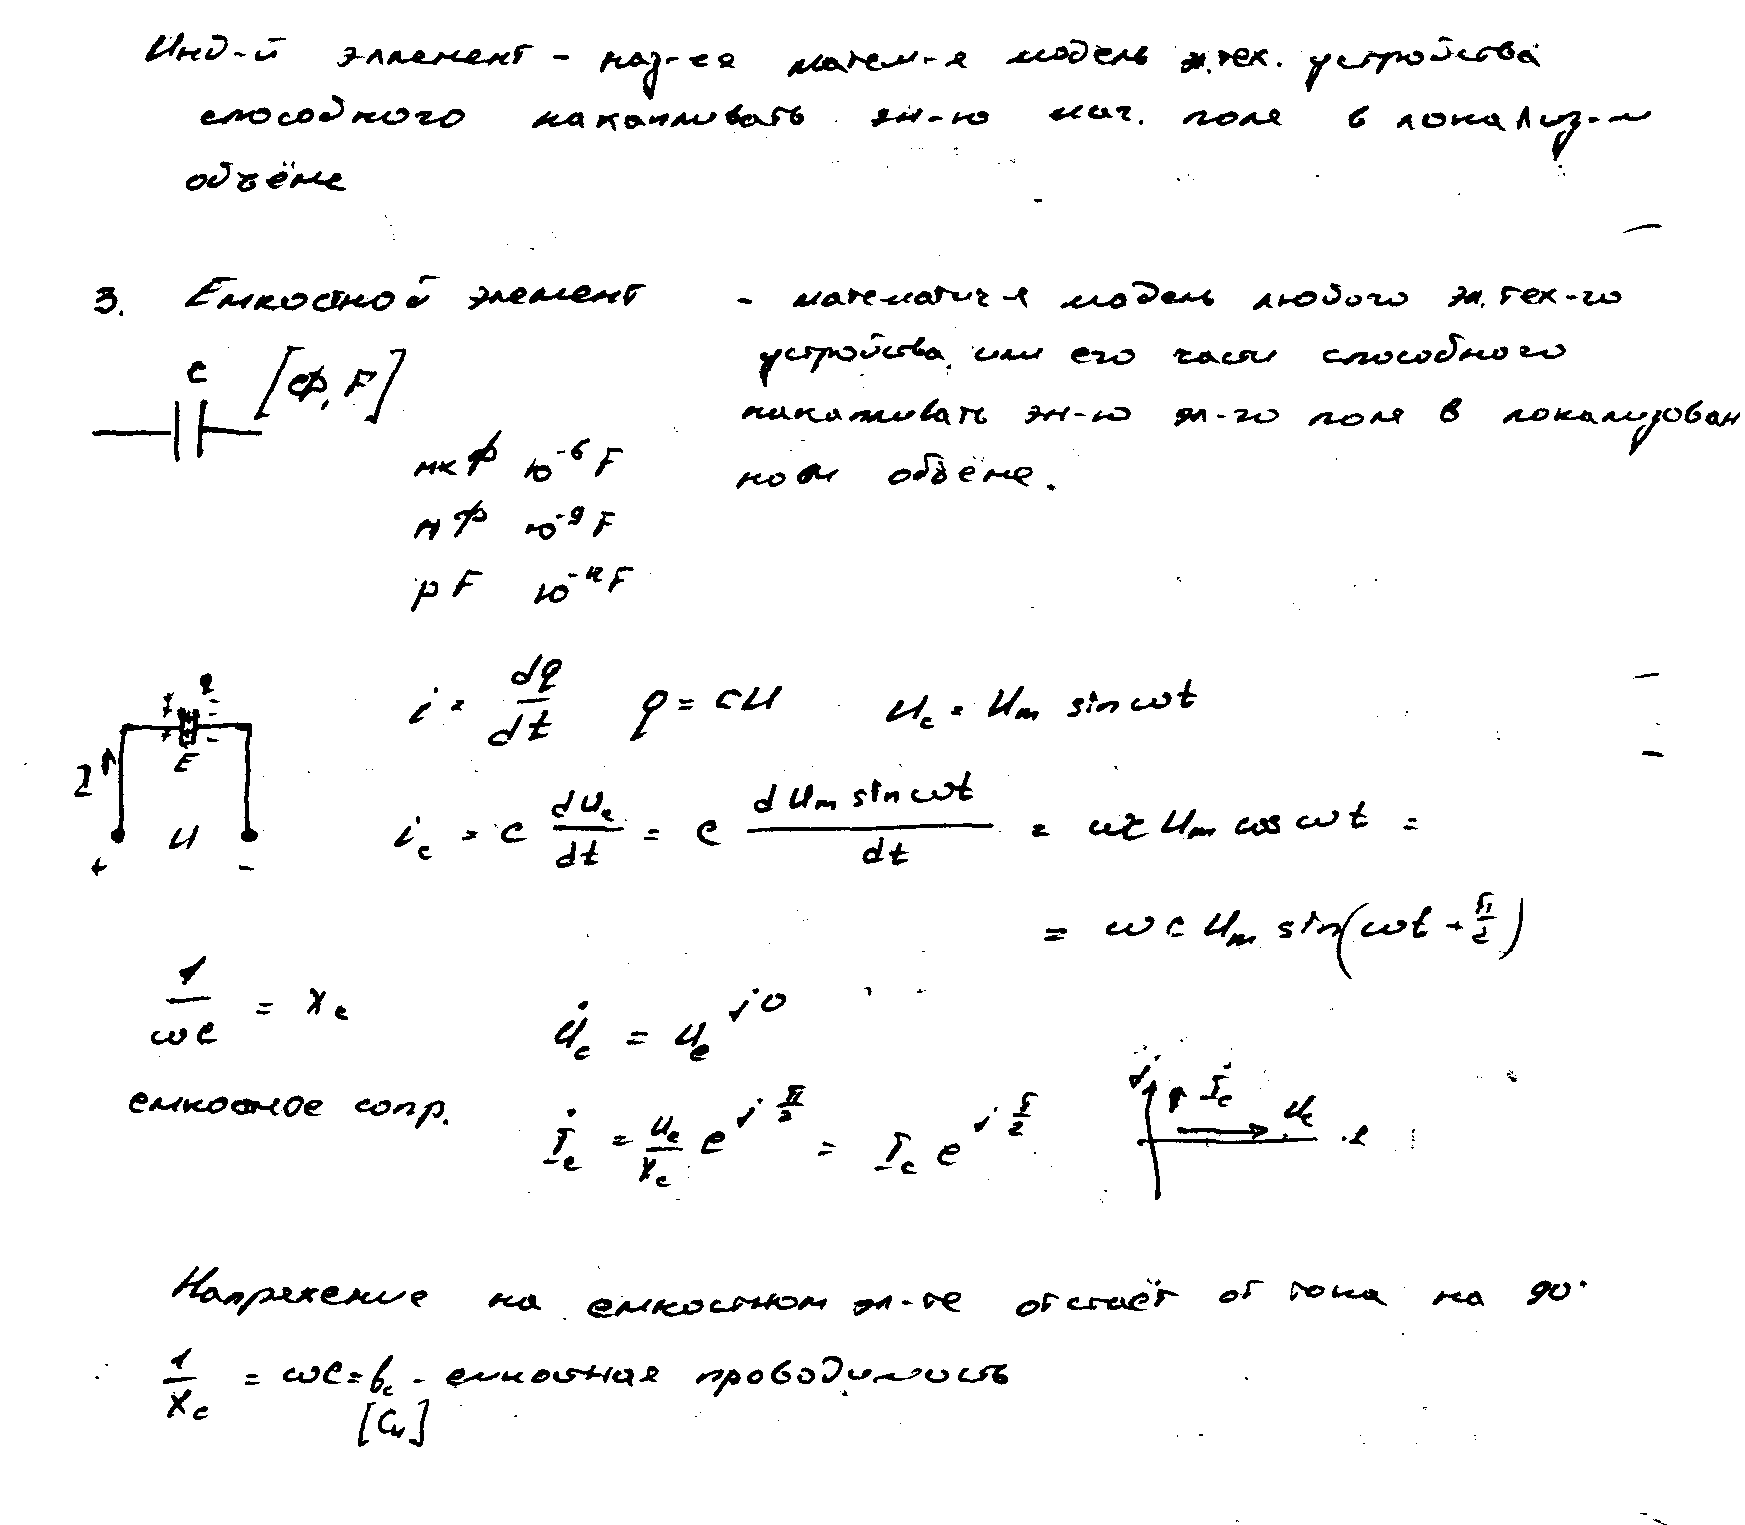 Инд-й элемент - наз-ся матем-я модель эл.тех. устройства
способного накапливать эн-ю маг. поля в локализ-м
объёме
3. Емкостной элемент - математич-я модель любого эл.тех-го
устройства, или его части способного
накапливать эн-ю эл-го поля в локализован
ном объёме.
C [Ф, F]
мкФ 10⁻⁶ F
нФ 10⁻⁹ F
pF 10⁻¹² F
q
E
I
U
+ -
i = dq/dt q = CU U_c = U_m sin ωt
i_c = C dU_c/dt = C d U_m sin ωt / dt = ωC U_m cos ωt =
= ωC U_m sin(ωt + π/2)
1/ωC = X_c
емкостное сопр.
U̇_c = U_c e^{j0}
İ_c = U_c/X_c e^{jπ/2} = I_c e^{jπ/2}
j İ_c U̇_c
Напряжение на емкостном эл-те отстаёт от тока на 90°
1/X_c = ωC = b_c - емкостная проводимость
[См]